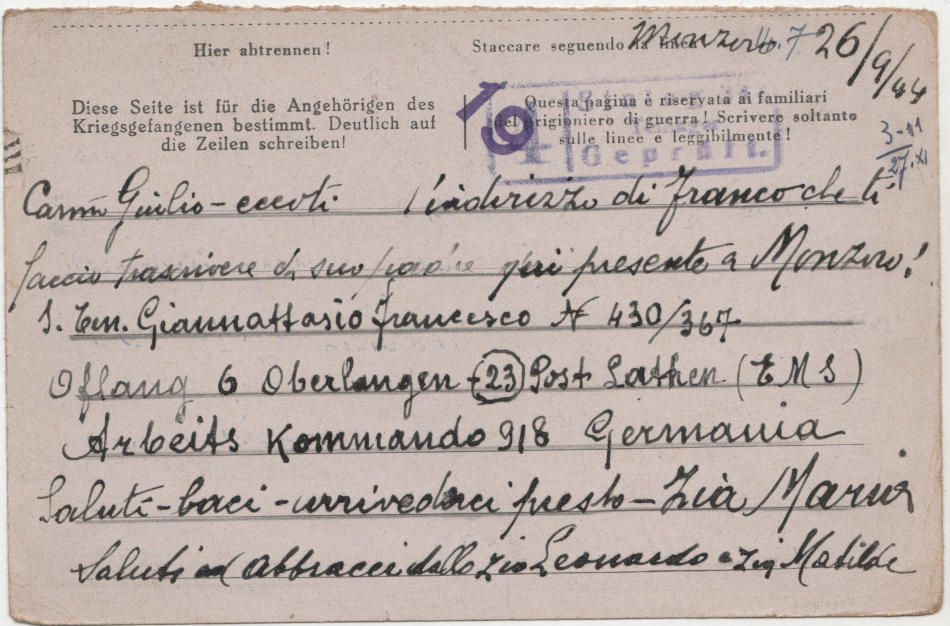 Hier abtrennen!
Staccare seguendo la linea
Monzoro 26/9/44
Diese Seite ist für die Angehörigen des
Kriegsgefangenen bestimmt. Deutlich auf
die Zeilen schreiben!
Questa pagina è riservata ai familiari
del prigioniero di guerra! Scrivere soltanto
sulle linee e leggibilmente!
19
Stalag
Geprüft.
3-11
27.XI
Giulio - eccoti l'indirizzo di Franco che ti
faccio trascrivere di suo padre qui presente a Monzoro!
S. Ten. Giannattasio Francesco N 430/367
Oflang 6 Oberlangen (23) Post Lathen (EMS)
Arbeits Kommando 918 Germania
Saluti - baci - arrivederci presto - Zia Maria
Saluti ed abbracci dallo zio Leonardo e zia Matilde